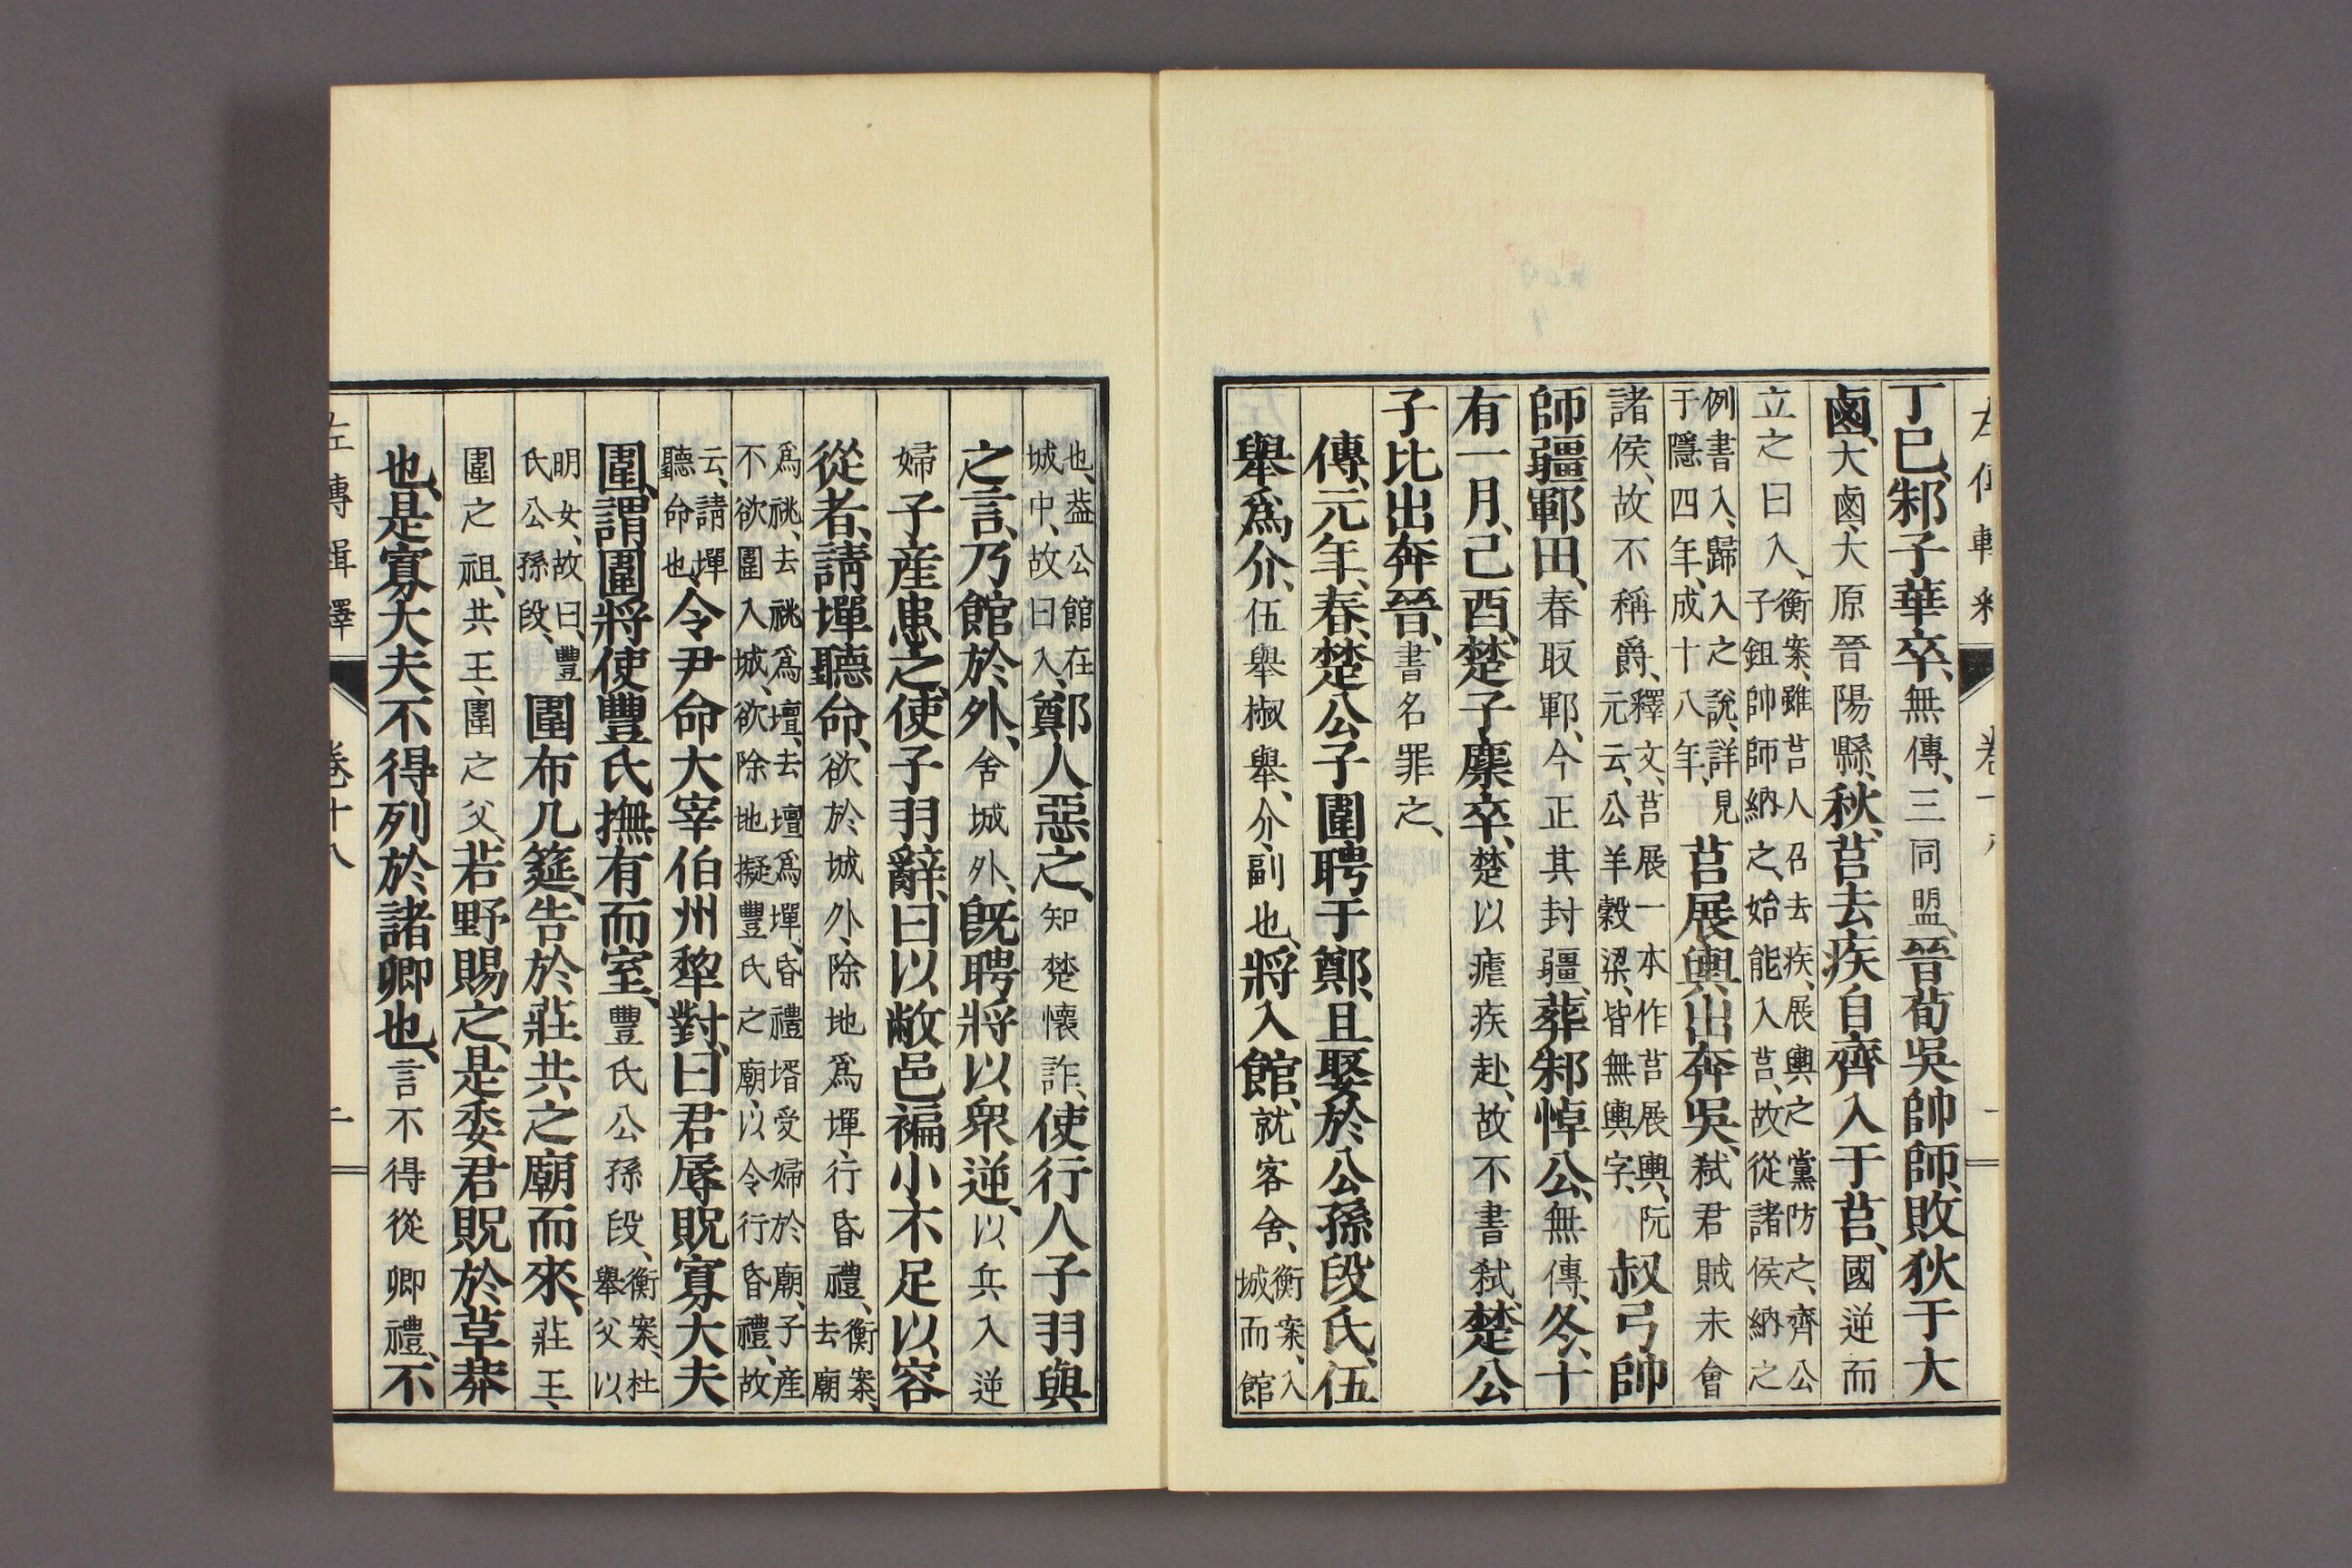 丁巳、邾子華卒、無傳、三同盟、晉荀吳帥師、敗狄于大
鹵、大鹵、大原晉陽縣、秋、莒去疾自齊入于莒、國逆而
立之曰入、衡案、雖莒人召去疾、展輿之黨防之、齊公子鉏帥師納之、始能入莒、故從諸侯納之
例書入、歸入之說、詳見于隱四年、成十八年、莒展輿出奔吳、弒君賊未會
諸侯、故不稱爵、釋文、莒展一本作莒展輿、阮元云、公羊穀梁、皆無輿字、叔弓帥
師疆鄆田、春取鄆、今正其封疆、葬邾悼公、無傳、冬、十
有一月、己酉、楚子麇卒、楚以瘧疾赴、故不書弒、楚公
子比出奔晉、書名罪之、
傳、元年、春、楚公子圍聘于鄭、且娶於公孫段氏、伍
舉爲介、伍舉椒舉、介、副也、將入館、就客舍、衡案、入城而館
也、蓋公館在城中、故曰入、鄭人惡之、知楚懷詐、使行人子羽與
之言、乃館於外、舍城外、既聘將以衆逆、以兵入逆
婦子產患之、使子羽辭、曰以敝邑褊小不足以容
從者、請墠聽命、欲於城外、除地爲墠、行昏禮、衡案、去廟
爲祧、去祧爲壇、去壇爲墠、昏禮壻受婦於廟、子產不欲圍入城、欲除地擬豐氏之廟、以令行昏禮、故
云、請墠聽命也、令尹命大宰伯州犂對、曰君辱貺寡大夫
圍、謂圍將使豐氏撫有而室、豐氏公孫段、衡案、杜舉父以
明女、故曰、豐氏公孫段、圍布几筵、告於莊共之廟而來、莊王、
圍之祖、共王、圍之父、若野賜之、是委君貺於草莽
也、是寡大夫不得列於諸卿也、言不得從卿禮、不
左傳輯釋 卷十八 二